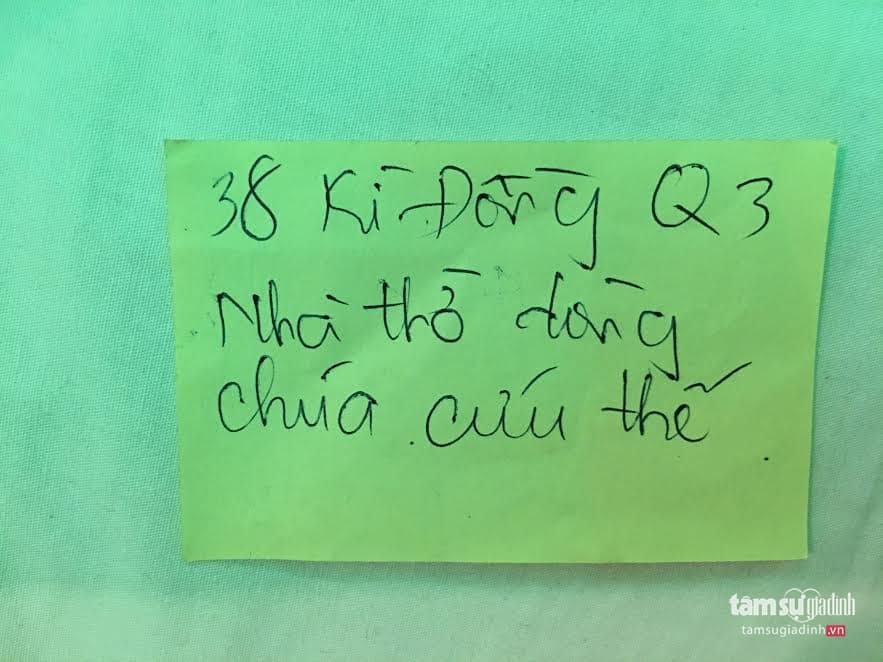 38 Kì Đồng Q3
Nhà thờ dòng
chúa cứu thế.
tâm sự giadinh
tamsugiadinh.vn